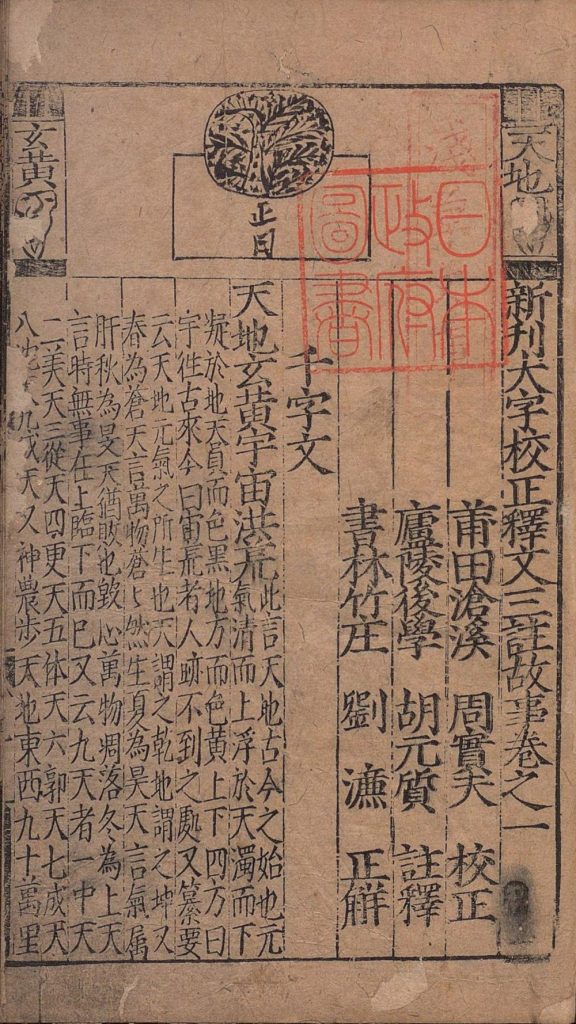 天地
新刊大字校正釋文三註故事卷之一
莆田滄溪 周實夫 校正
廬陵後學 胡元質 註釋
書林竹庄 劉濂 正觧
日本
政府
圖書
正目
千字文
天地玄黃宇宙洪荒 此言天地古今之始也元
氣清而上浮於天濁而下
凝於地天員而色黑地方而色黃上下四方曰
宇徃古來今曰宙荒者人跡不到之處又纂要
云天地元氣之所生也天謂之乾地謂之坤又
春為蒼天言萬物蒼〻然生夏為昊天言氣属
肝秋為旻天猶敗也毀心萬物凋落冬為上天
言時無事在上臨下而已又云九天者一中天
二羙天三從天四更天五体天六郭天七成天
八九成天又神農步天地東西九十萬里
玄黃